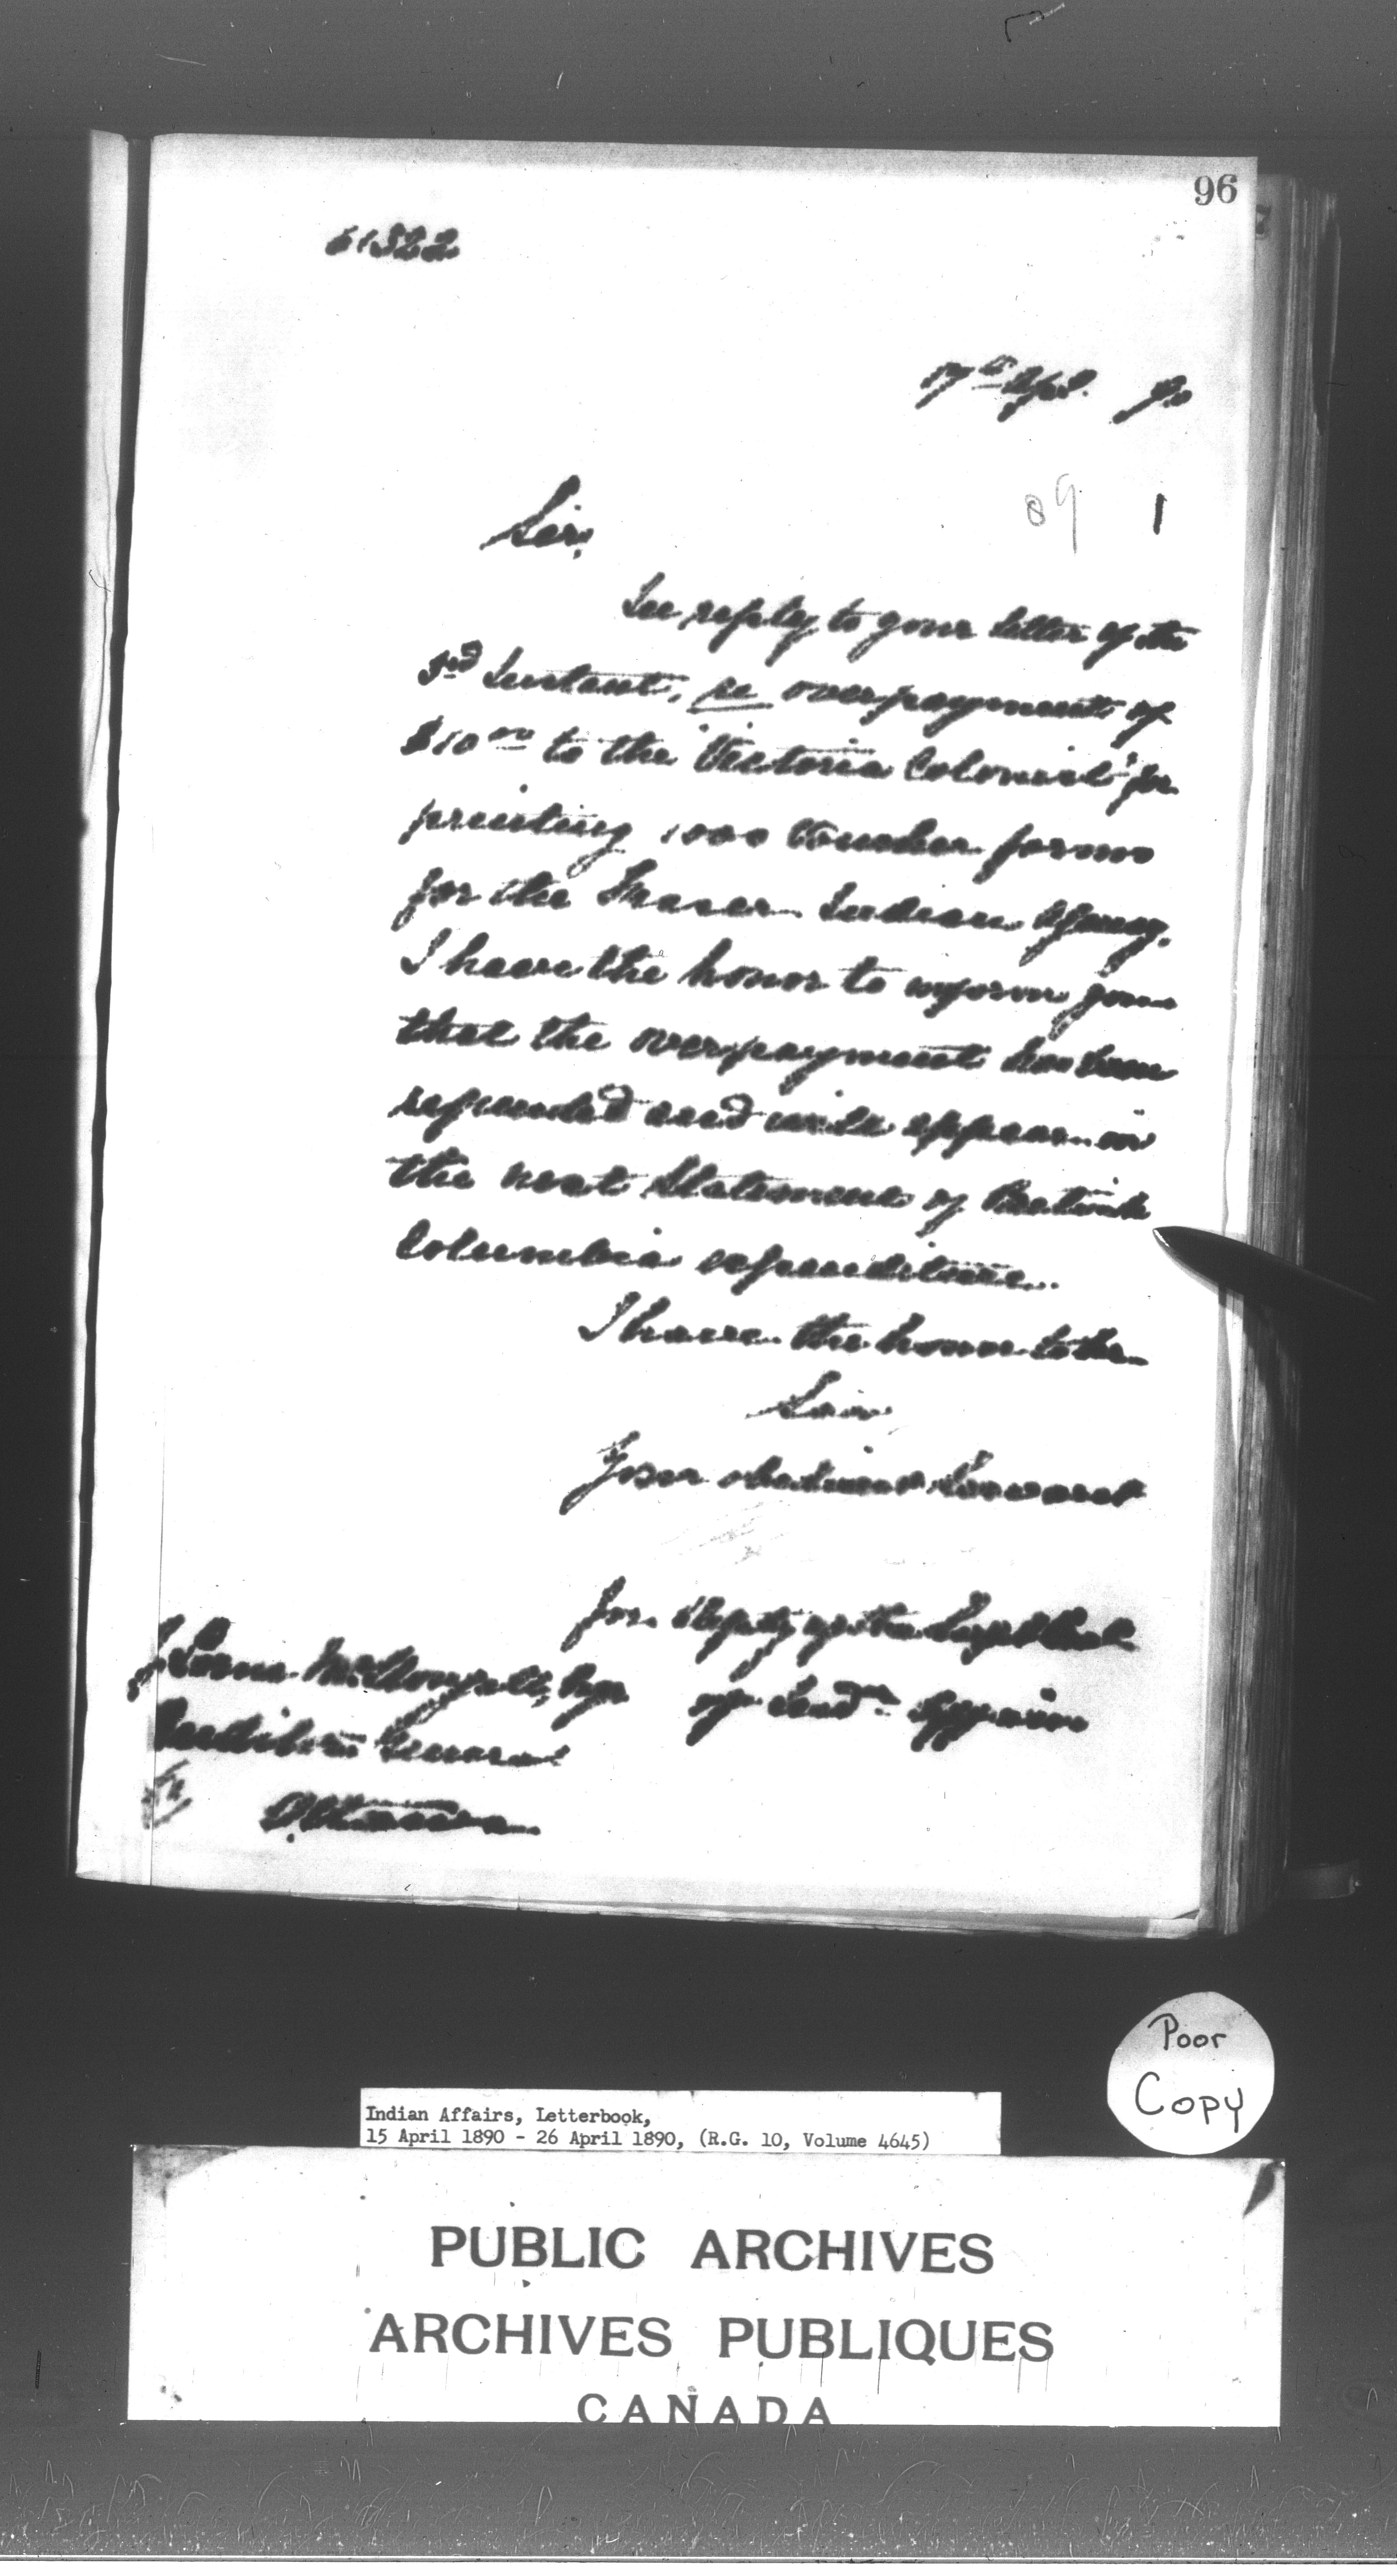 96
61522
17th Apl. 90
89 1
Sir,
In reply to your letter of the
3rd Instant, re overpayment of
$10 00 to the "Victoria Colonist" for
printing 1000 Voucher forms
for the Fraser Indian Agency,
I have the honor to inform you
that the overpayment has been
refunded and will appear in
the next Statement of British
Columbia expenditure.
I have the honor to be
Sir
Your obedient Servant
for Deputy of the Supt Genl
of Indn Affairs
J. Lorne McDougall, Esqr
Auditor General
Ottawa
Poor
Copy
Indian Affairs, Letterbook,
15 April 1890 - 26 April 1890, (R.G. 10, Volume 4645)
PUBLIC ARCHIVES
ARCHIVES PUBLIQUES
CANADA